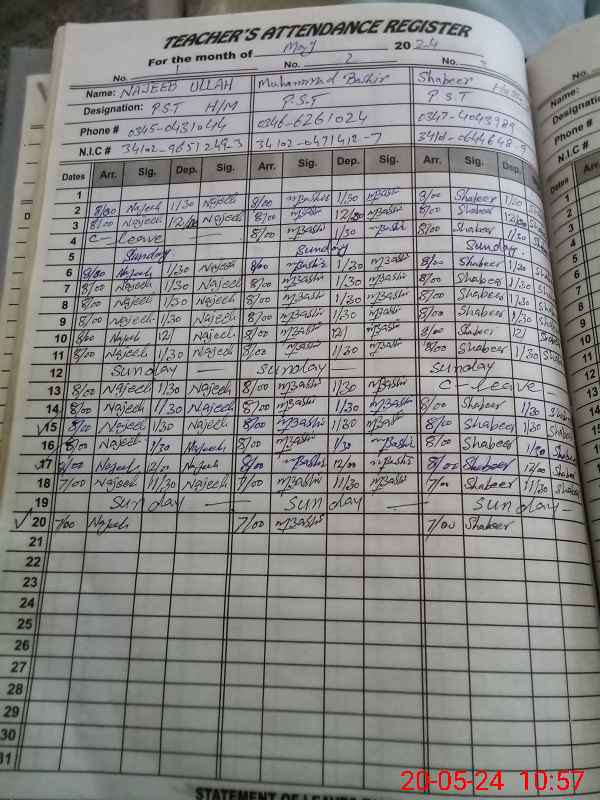 TEACHER'S ATTENDANCE REGISTER
For the month of May 2024
No. 1 No. 2 No.
Name: NAJEEB ULLAH Muhammad Bashir Shabeer
Designation: P.S.T H/M P.S.T P.S.T
Phone # 0345-0431044 0346-6261024 0347-4043989
N.I.C # 34102-9651249-3 34102-0471412-7
Dates Arr. Sig. Dep. Sig. Arr. Sig. Dep. Sig. Arr. Sig. Dep. Sig.
1
2 8/00 Najeeb 1/30 Najeeb 8/00 mBashir 1/30 mBashir 8/00 Shabeer 1/30
3 8/00 Najeeb 12/00 Najeeb 8/00 mBashir 12/00 mBashir 8/00 Shabeer
4 C-leave 8/00 mBashir 1/30 mBashir 8/00 Shabeer 1/30
5 Sunday Sunday Sunday
6 8/00 Najeeb 1/30 Najeeb 8/00 mBashir 1/30 mBashir 8/00 Shabeer 1/30
7 8/00 Najeeb 1/30 Najeeb 8/00 mBashir 1/30 mBashir 8/00 Shabeer 1/30
8 8/00 Najeeb 1/30 Najeeb 8/00 mBashir 1/30 mBashir 8/00 Shabeer 1/30
9 8/00 Najeeb 1/30 Najeeb 8/00 mBashir 1/30 mBashir 8/00 Shabeer 1/30
10 8/00 Najeeb 12/ Najeeb 8/00 mBashir 12/ mBashir 8/00 Shabeer 12/
11 8/00 Najeeb 1/30 Najeeb 8/00 mBashir 1/30 mBashir 8/00 Shabeer 1/30
12 Sunday — Sunday — Sunday
13 8/00 Najeeb 1/30 Najeeb 8/00 mBashir 1/30 mBashir C-leave -
14 8/00 Najeeb 1/30 Najeeb 8/00 mBashir 1/30 mBashir 8/00 Shabeer 1/30
15 8/00 Najeeb 1/30 Najeeb 8/00 mBashir 1/30 mBashir 8/00 Shabeer 1/30
16 8/00 Najeeb 1/30 Najeeb 8/00 mBashir 1/30 mBashir 8/00 Shabeer 1/30
17 8/00 Najeeb 12/00 Najeeb 8/00 mBashir 12/00 mBashir 8/00 Shabeer 12/00
18 7/00 Najeeb 11/30 Najeeb 7/00 mBashir 11/30 mBashir 7/00 Shabeer 11/30
19 Sunday — Sunday — Sunday -
20 7/00 Najeeb 7/00 mBashir 7/00 Shabeer
21
22
23
24
25
26
27
28
29
30
31
STATEMENT OF LEAVES
20-05-24 10:57